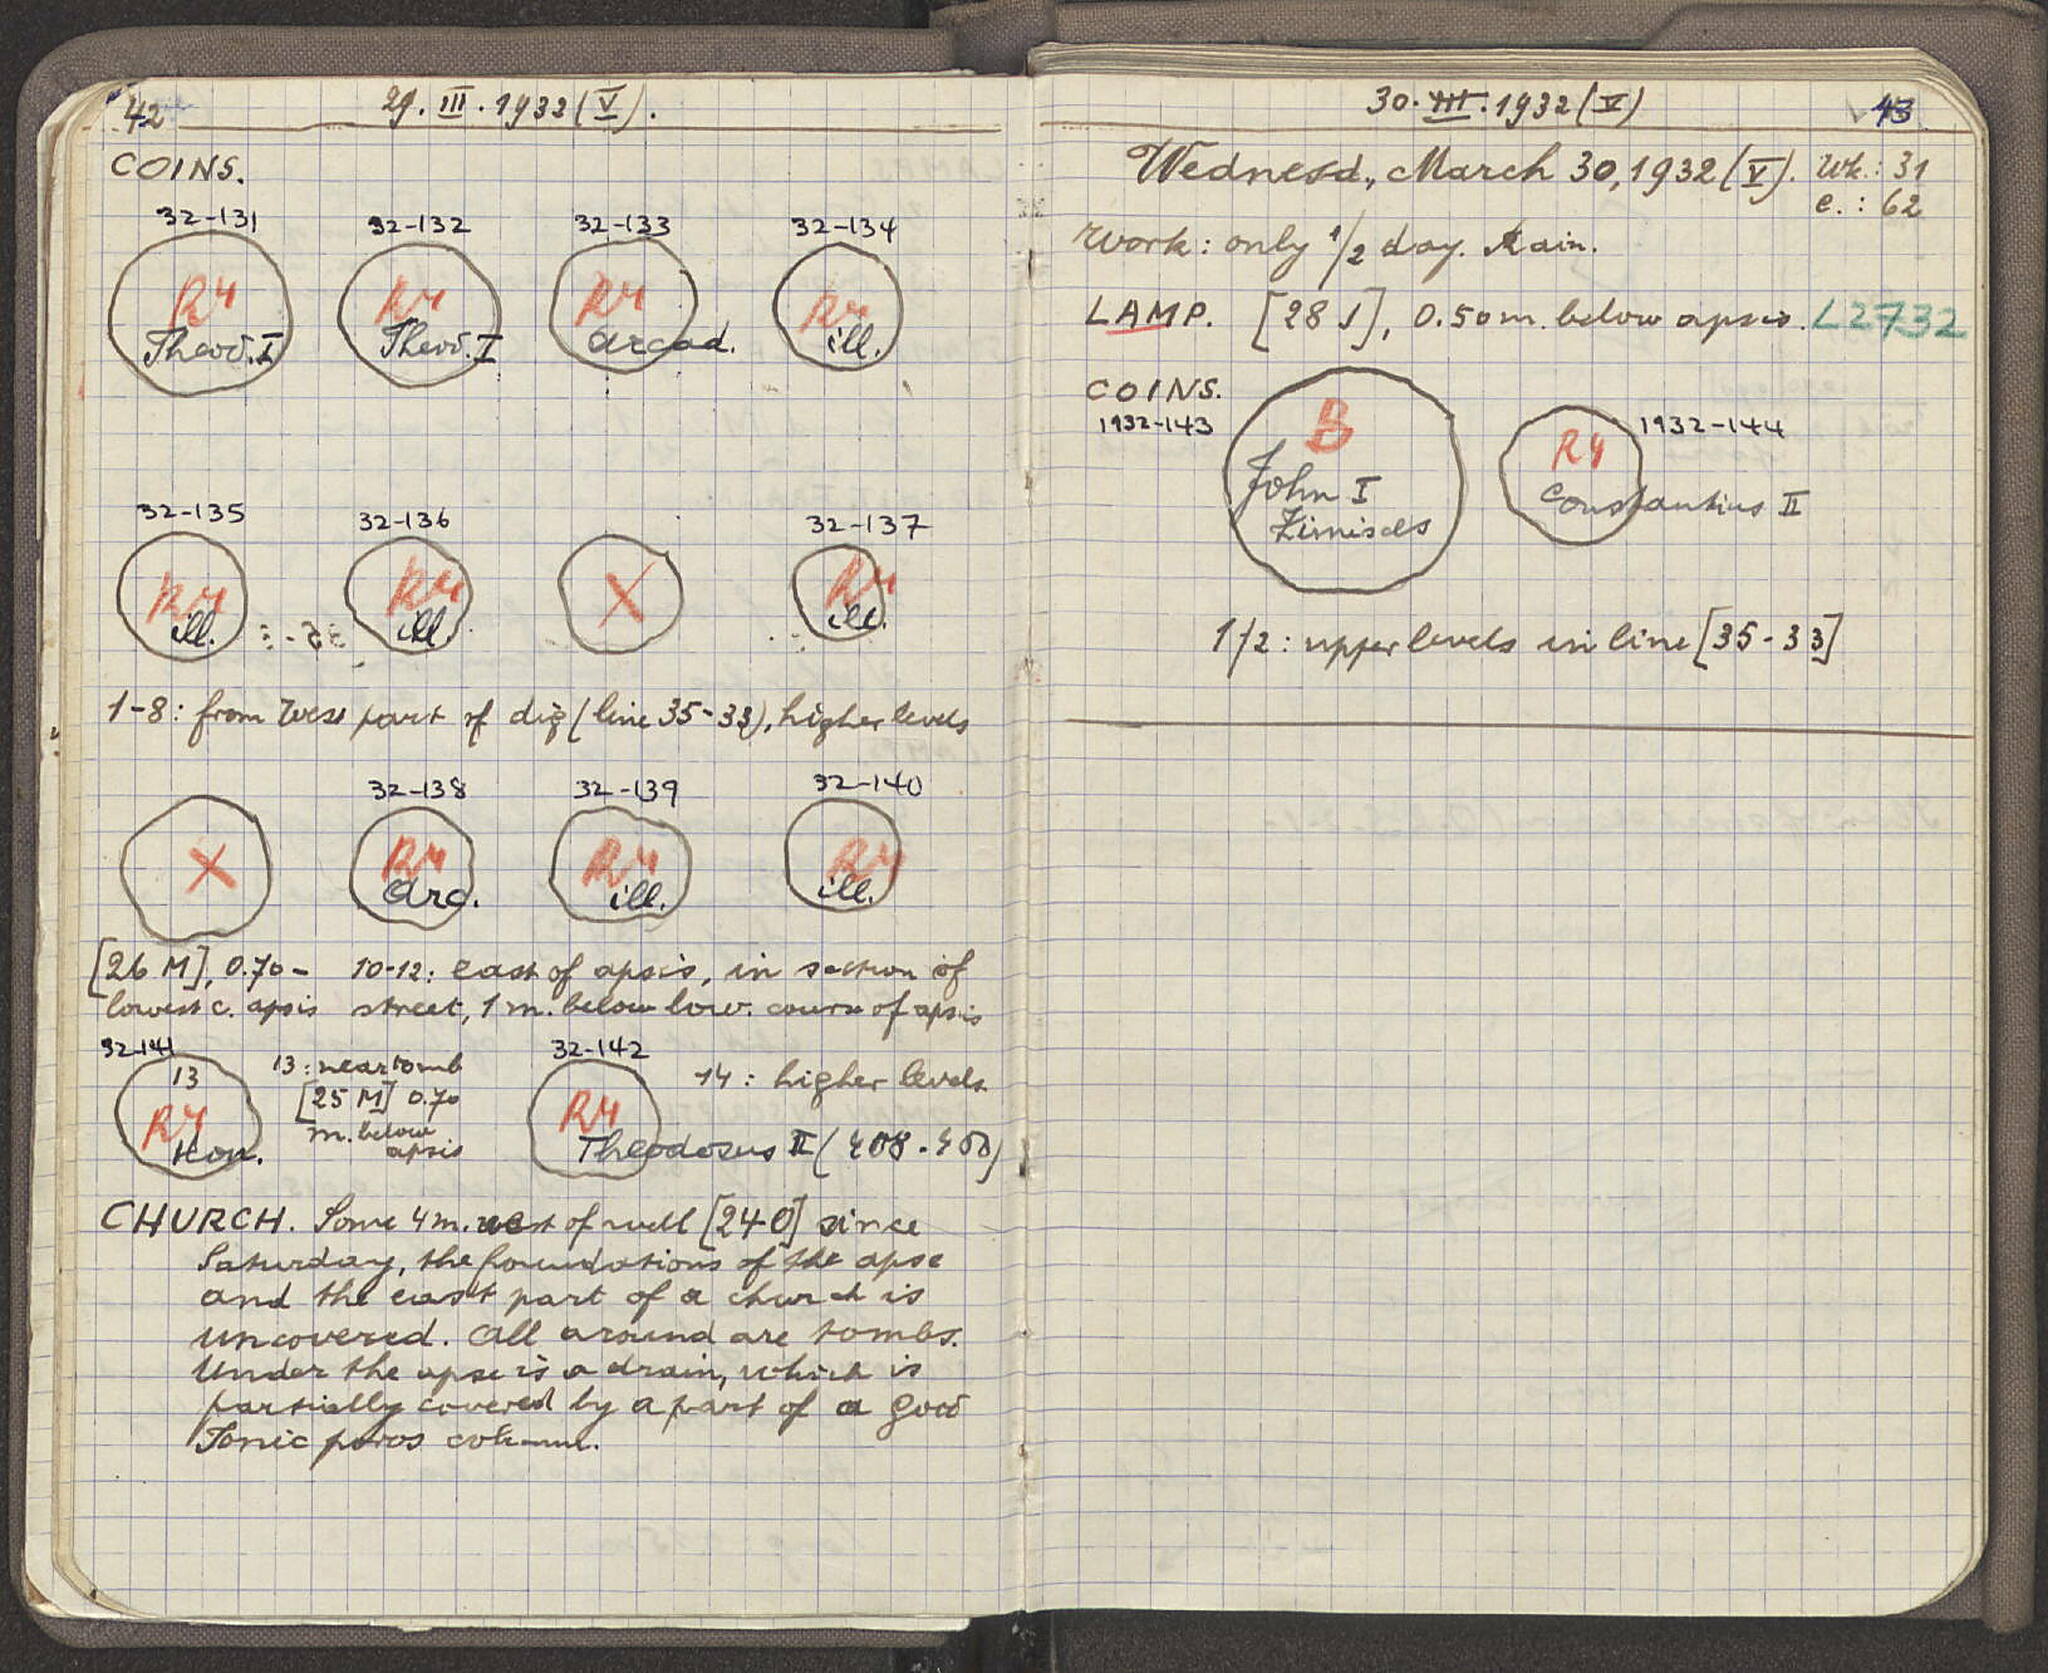 42
29. III. 1932 (V).
COINS.
32-131 32-132 32-133 32-134
R4 R4 R4 R4
Theod. I Theod. I Arcad. ill.
32-135 32-136 32-137
R4 R4 X R4
ill. ill. ill.
1-8: from West part of dig (line 35-33), higher levels
32-138 32-139 32-140
X R4 R4 R4
Arc. ill. ill.
[26 M], 0.70 - 10-12: east of apsis, in section of
lowest c. apsis street, 1 m. below low. course of apsis
32-141
13
R4
Hon.
13: near tomb
[25 M] 0.70
m. below
apsis
32-142
R4
Theodosus II (408-450)
14: higher levels.
CHURCH. Some 4 m. west of well [24 O] since
Saturday, the foundations of the apse
and the east part of a church is
uncovered. All around are tombs.
Under the apse is a drain, which is
partially covered by a part of a good
Ionic poros column.
30. III. 1932 (V)
43
Wednesd., March 30, 1932 (V). Wk.: 31
c.: 62
Work: only 1/2 day. Rain.
LAMP. [28 J], 0.50 m. below apsis. L2732
COINS.
1932-143
B
John I
Zimisces
1932-144
R4
Constantius II
1/2: upper levels in line [35-33]